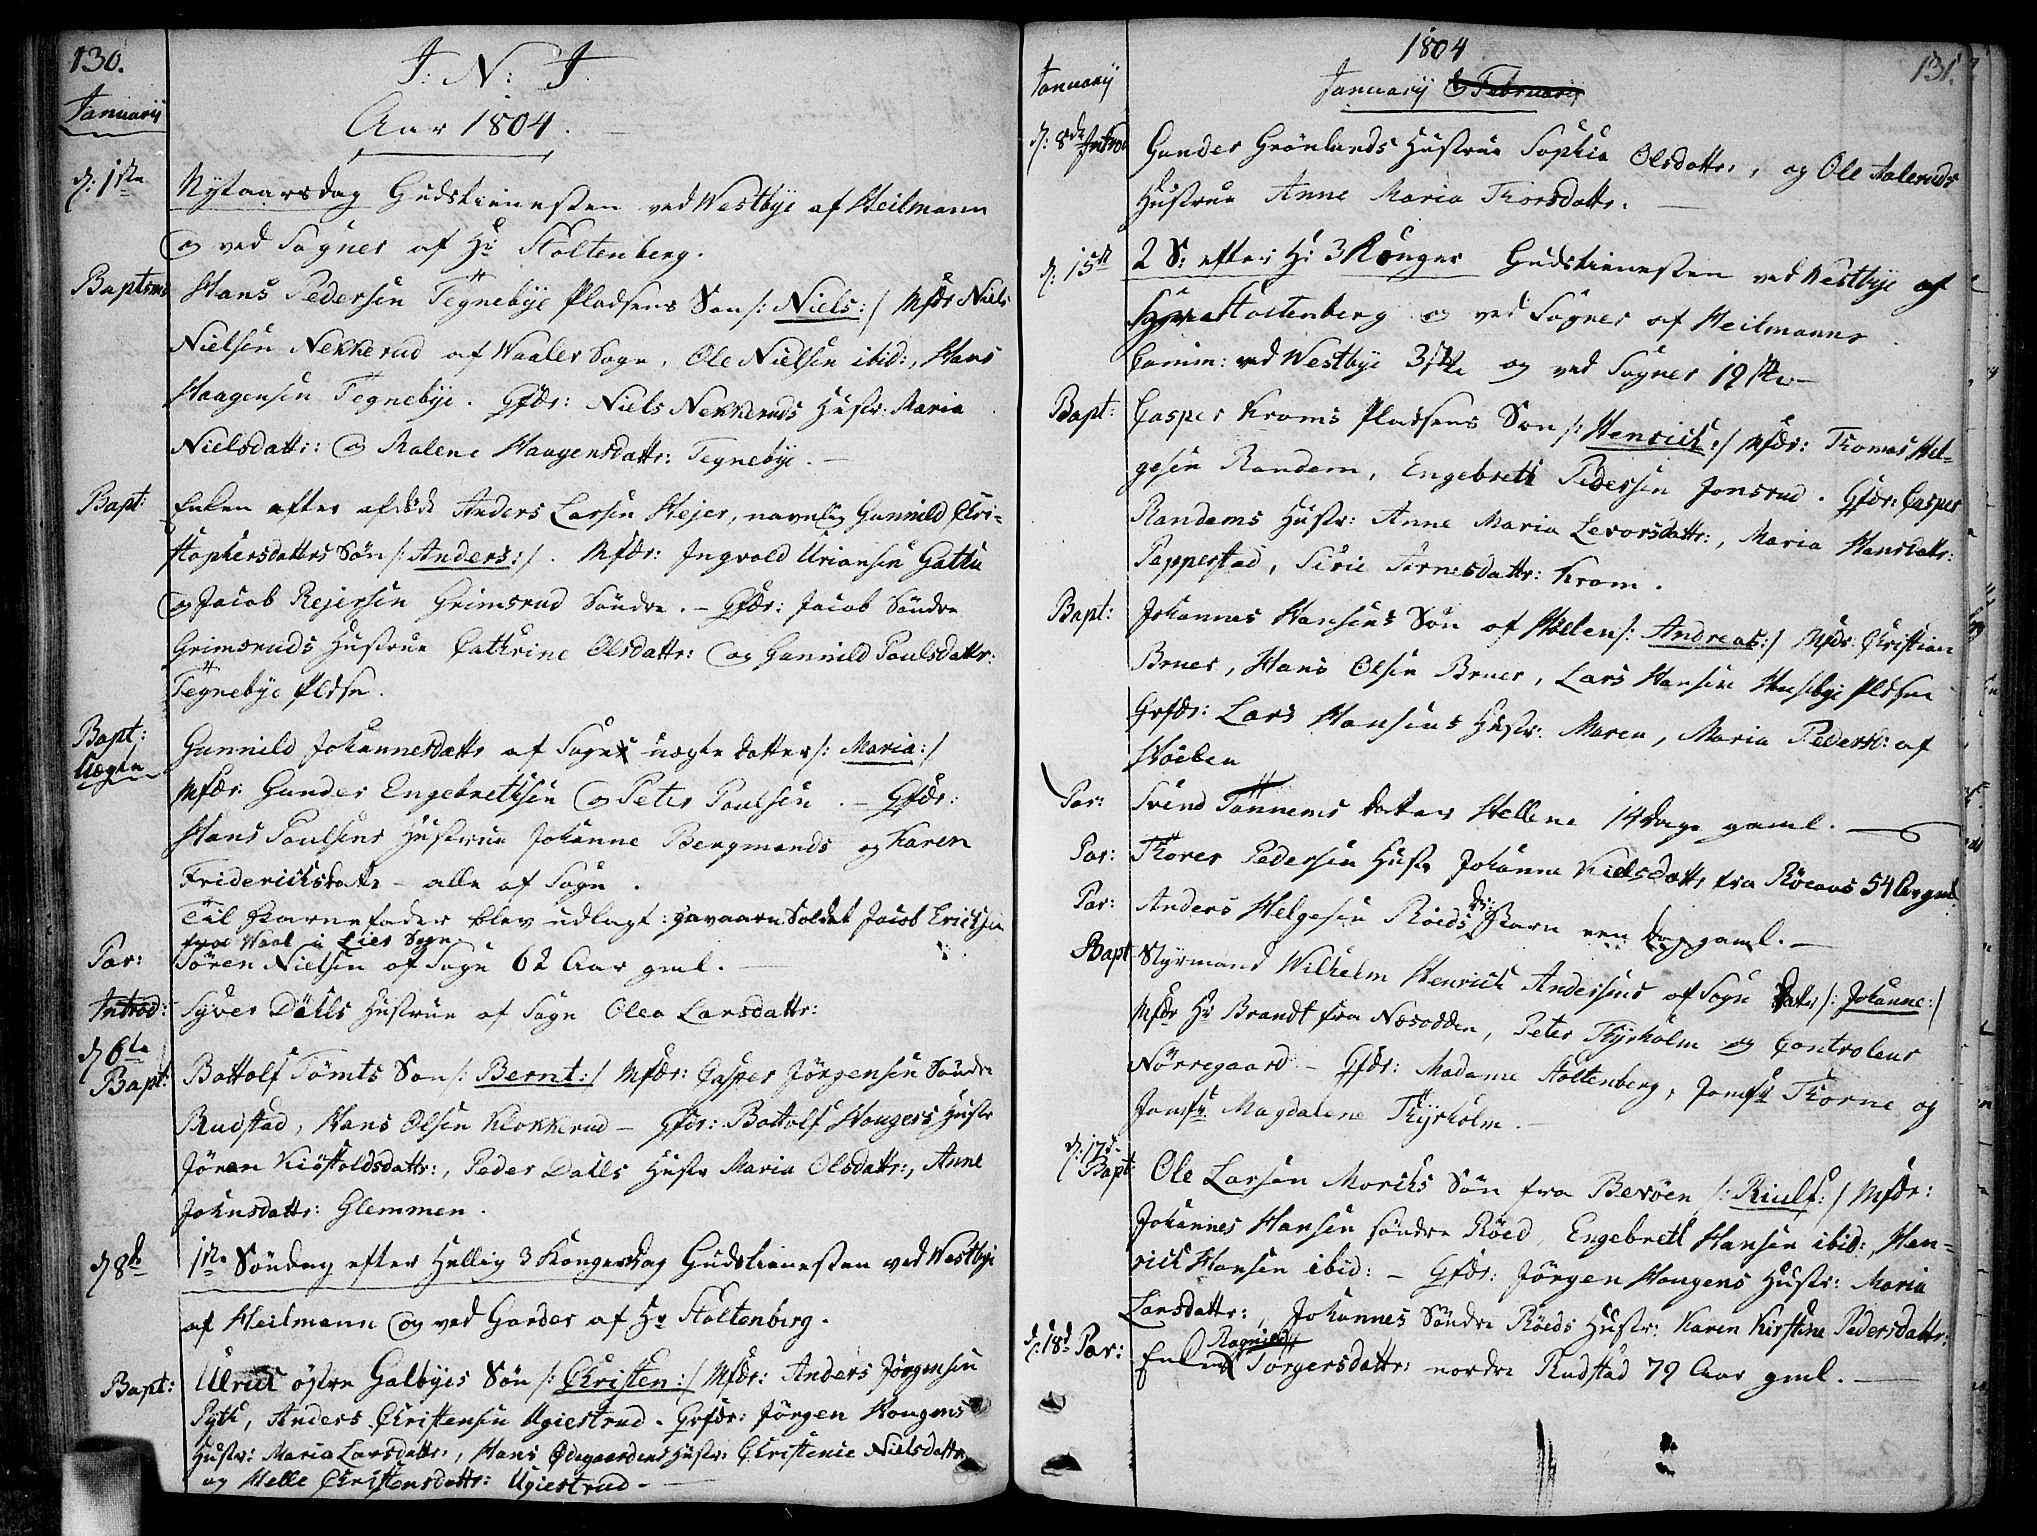 130.
J: N: J
Januarij
Aar 1804.
d: 1ste Nytaarsdag Gudstienesten ved Westbye af Heilmann
og ved Sogner af Hr Stoltenberg.
Baptsme Hans Pedersen Tegnebye Pladsens Søn /: Niels :/ Mfdr Niels
Nielsen Nekkerud af Waaler Sogn, Ole Nielsen ibid:, Hans
Haagensen Tegnebye. Gfdr: Niels Nekkeruds Hustr: Maria
Nielsdattr: og Malene Haagensdattr: Tegnebye.
Bapt: Enken efter afdøde Anders Larsen Hejer, navnlig Gunnild Chri-
stophersdatters Søn /: Anders :/. Mfdr: Ingvald Uriansen Gattu
og Jacob Rejersen Grimsrud Søndre. – Gfdr: Jacob Søndre
Grimsruds Hustrue Cathrine Olsdattr: og Gunnild Poulsdattr:
Tegnebye Pldsn.
Bapt: Uægte Gunnild Johannesdattr af Sogn uægte datter /: Maria :/
Mfdr: Gunder Engebrethsen og Peter Poulsen. – Gfdr:
Hans Poulsens Hustrue Johanne Bergmands og Karen
Friderichsdattr – alle af Sogn.
Til Barnefader blev udlagt: gevorben Soldat Jacob Ericksen
fra Waal i Lier Sogn
Par: Søren Nielsen af Sogn 62 Aar gml.
Introd: Syver Dahls Hustrue af Sogn Olea Larsdattr:
d 6te
Bapt: Bottolf Tømts Søn /: Bernt :/ Mfdr: Casper Jørgensen Søndre
Rudstad, Hans Olsen Klokkerud – Gfdr: Bottolf Hougers Hustr
Jøran Kiøstoldsdattr:, Peder Dalls Hustr Maria Olsdattr:, Anne
Johnsdattr: Glemmen.
d 8de 1ste Søndag efter Hellig 3 Kongersdag Gudstienesten ved Westbye
af Heilmann og ved Garder af Hr Stoltenberg.
Bapt: Ulrich østre Galbyes Søn /: Christen :/ Mfdr: Anders Jørgensen
Pytt, Anders Christensen Ugiestrud. Gvfdr: Jørgen Hougens
Hustr: Maria Larsdattr:, Hans Ødegaardens Hustr: Christenie Nielsdattr
og Helle Christensdattr: Ugiestrud –
1804
131.
Januarij
Januarij & Februarij
d: 8de Introd Gunder Grønlunds Hustrue Sophia Olsdattr:, og Ole Aaleruds
Hustrue Anne Maria Thorsdattr.
d: 15de 2 S: efter H: 3 Konger Gudstienesten ved Westbye af
Hr Stoltenberg og ved Sogner af Heilmann
Comm: ved Westbye 3 Stk og ved Sogner 19 Stk –
Bapt: Casper Kroms Pladsens Søn /: Henrich :/ Mfdr: Thomas Hel-
gesen Randem, Engebreth Pedersen Jonsrud. Gfdr: Casper
Randems Hustr: Anne Maria Levorsdattr:, Maria Hansdattr:
Pepperstad, Sirie Arnesdattr: Krom.
Bapt: Johannes Hansens Søn af Hølen /: Andreas :/ Mfdr. Christian
Bruer, Hans Olsen Bruer, Lars Hansen Husebye Pldsen
Gvfdr: Lars Hansens Hustr: Maren, Maria Pedersd: af
Hølen
Par: Svend Tannems datter Hellene 14 dage gaml.
Par: Thorer Pedersen Hustr Johanne Nielsdattr fra Røeaas 54 Aar gml.
Par: Anders Helgesen Røeds D: Barn een dag gaml. –
Bapt Styrmand Wilhelm Henrich Andersens af Sogn Datter /: Johanne :/
Mfdr Hr Brandt fra Næsodden, Peter Thyrholm og Controleur
Nørregaard – Gfdr: Madame Stoltenberg, Jomfr Thorne og
Jomfr Magdalene Thyrholm.
d: 17de
Bapt: Ole Larsen Morchs Søn fra Bevøen /: Riulf :/ Mfdr:
Johannes Hansen søndre Røed, Engebreth Hansen ibid:, Hen-
rich Hansen ibid: – Gfdr: Jørgen Hougens Hustr: Maria
Larsdattr:, Johannes Søndre Røeds Hustr: Karen Kirstine Pedersdattr:
d: 18d Par: Enken Ragnild Torgersdattr: nordre Rudstad 79 Aar gml. –